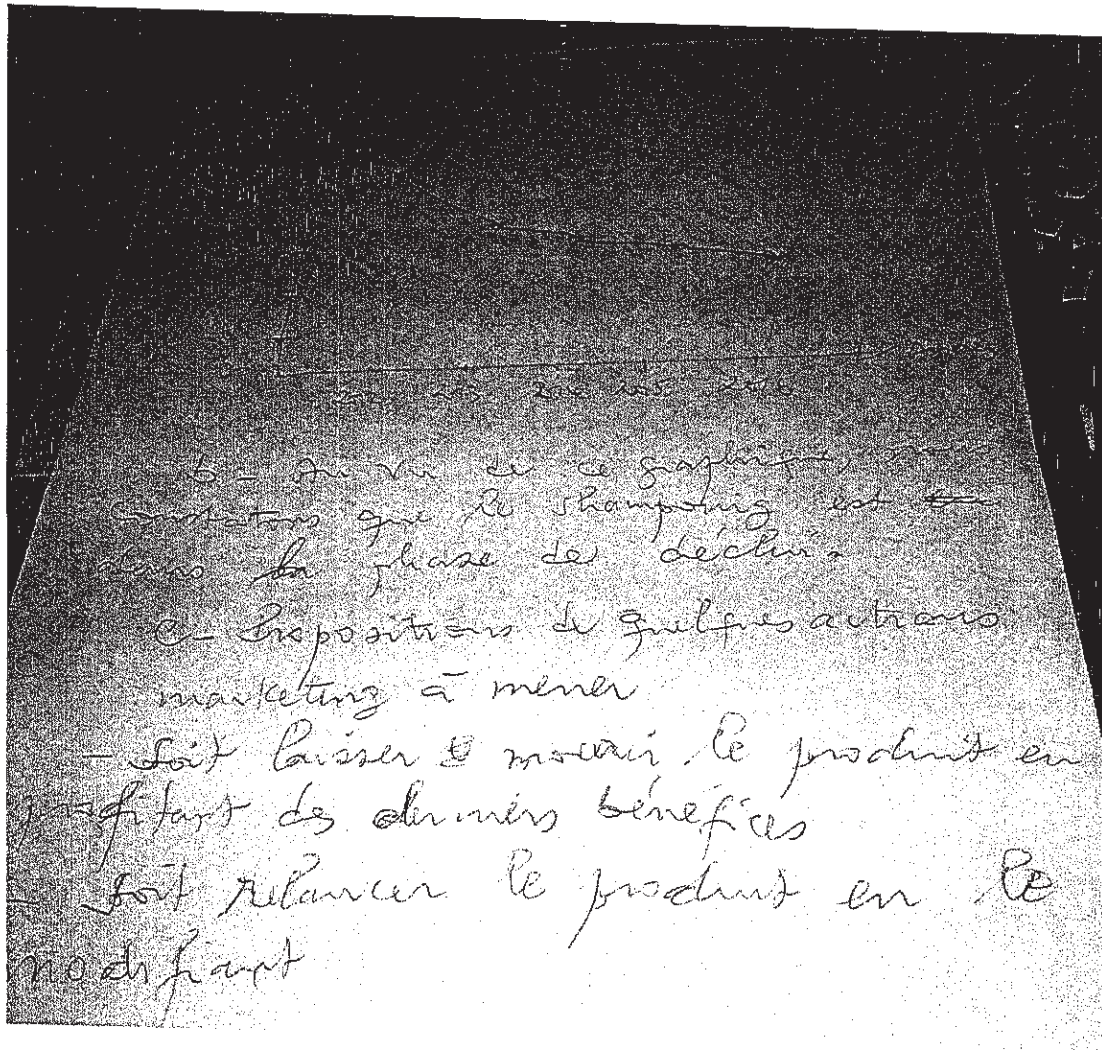 2003 2004 2005 2006
b - Au vu de ce graphique, nous
constatons que le shampoing est
dans la phase de déclin.
c - Propositions de quelques actions
marketing à mener
- Soit laisser mourir le produit en
profitant des derniers bénéfices
- Soit relancer le produit en le
modifiant